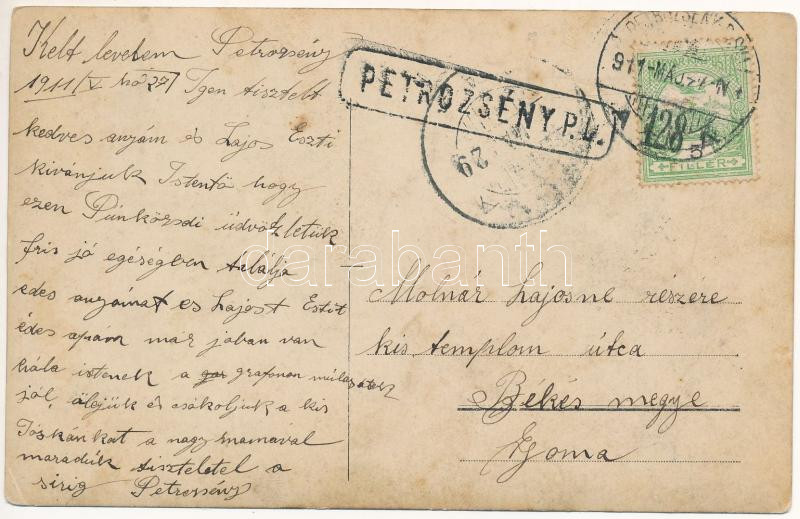 Kelt levelem Petrozsény
1911 V hó 27 Igen tisztelt
kedves anyám és Lajos Eszti
kivánjuk Istentö hogy
ezen Pünközsdi üdvözletünk
fris jó egéségben talája
edes anyámat es Lajost Estit
édes apám már jóban van
hála istenek a grafonon
jól, ölejük és csókoljuk a kis
Jóskánkat a nagymamával
maradúk tiszteletel a
sirig Petrozsény
PETROZSÉNY P.U.
29
911 MÁJ
FILLÉR
darabanth
Molnár Lajosne részére
kis templom útca
Békés megye
Gyoma